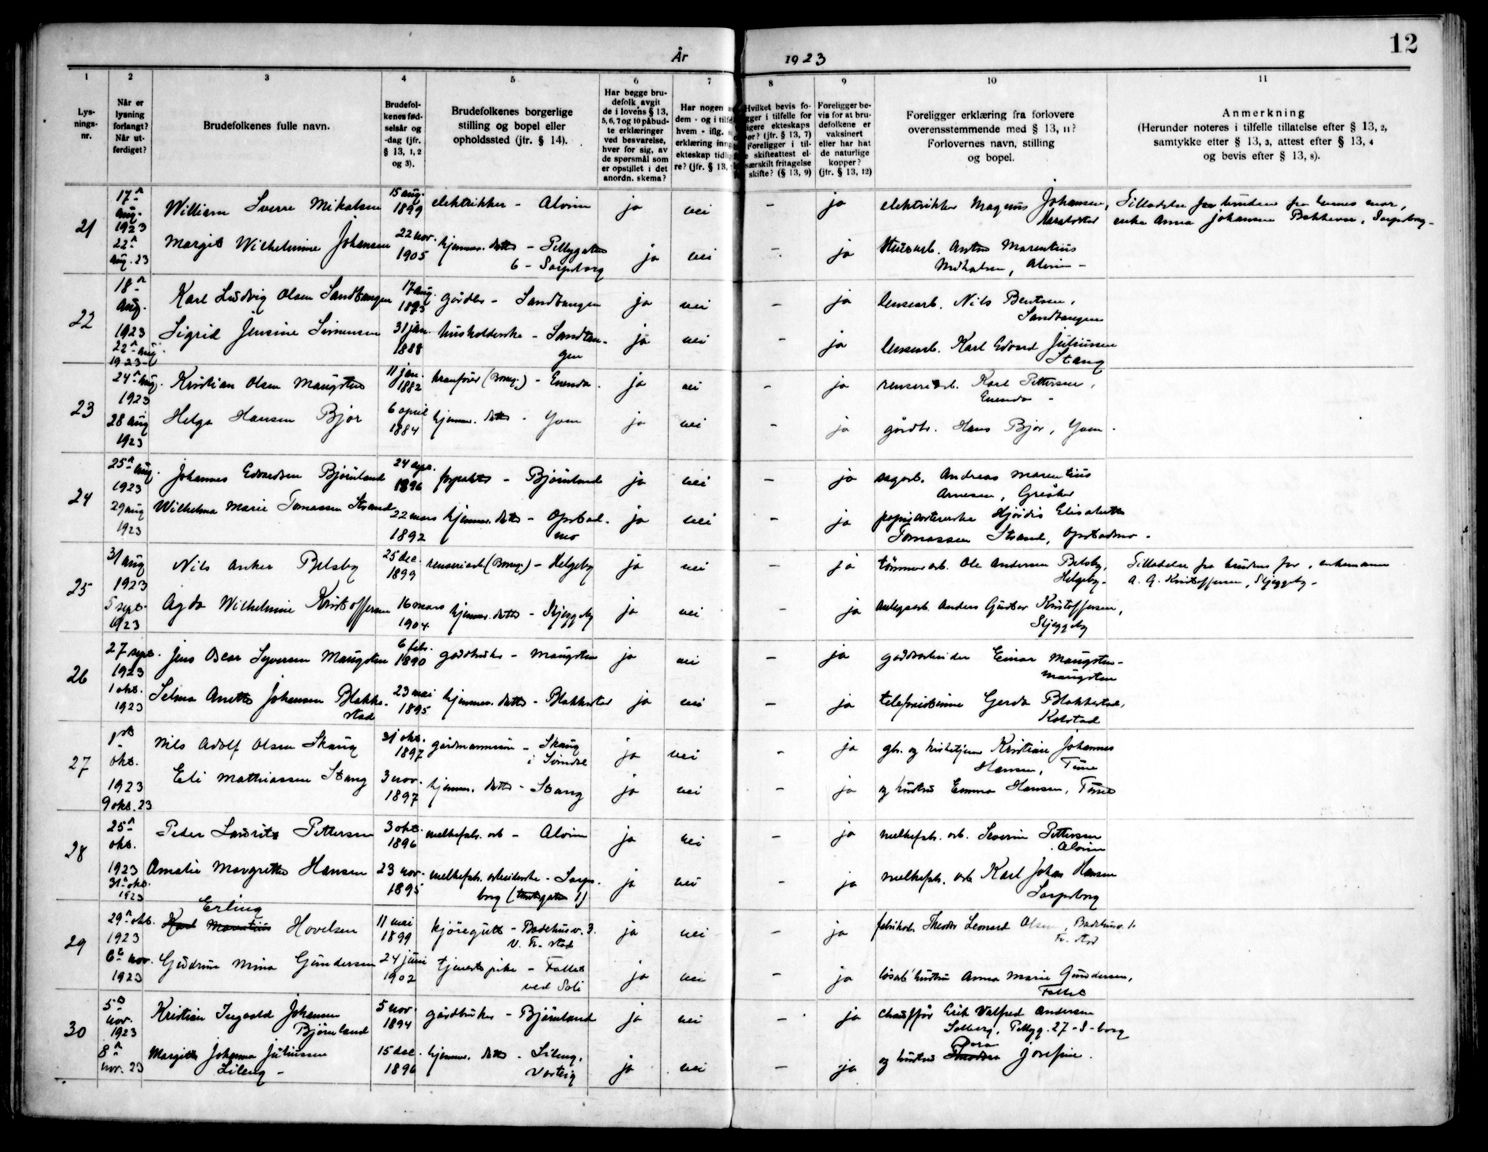 År 1923
12
1 2 3 4 5 6 7 8 9 10 11
Lys-
nings-
nr.
Når er
lysning
forlangt?
Når ut-
ferdiget?
Brudefolkenes fulle navn.
Brudefol-
kenes fød-
selsår og
-dag (jfr.
§ 13, 1, 2
og 3).
Brudefolkenes borgerlige
stilling og bopel eller
opholdssted (jfr. § 14).
Har begge bru-
defolk avgit
de i lovens § 13,
5, 6, 7 og 10 påbud-
te erklæringer
ved besvarelse,
hver for sig, av
de spørsmål som
er opstillet i det
anordn. skema?
Har nogen
dem - og i tilf
hvem - iflg.
erklæring inng
ekteskap tidlig
re? (jfr. § 13,
Hvilket bevis fo
gger i tilfelle for
ligere ekteskaps
ør? (jfr. § 13, 7)
Foreligger i til-
e skifteattest el
særskilt fritagelse
skifte? (§ 13, 9)
Foreligger be-
vis for at bru-
defolkene er
vaksinert
eller har hat
de naturlige
kopper?
(jfr. § 13, 12)
Foreligger erklæring fra forlovere
overensstemmende med § 13, 11?
Forlovernes navn, stilling
og bopel.
Anmerkning
(Herunder noteres i tilfelle tillatelse efter § 13, 2,
samtykke efter § 13, 3, attest efter § 13, 4
og bevis efter § 13, 8).
21 17 aug. 1923 William Sverre Mikalsen 15 aug. 1899 elektrikker - Alvim ja nei - ja elektrikker Magnus Johansen,
22 aug. 23 Margit Wilhelmine Johansen 22 nov. 1905 hjemmev. datter - 6 - Sarpsborg ja nei - ja Anton Marentius
Mikalsen, Alvim -
22 18 aug. 1923 Karl Ludvig Olsen Sandtangen 17 aug. 1895 gårdbr - Sandtangen ja nei - ja lensearb. Nils Bentsen,
Sandtangen
22 aug 1923 Sigrid Jensine Simensen 31 jan. 1888 husholderske - Sandtan-
gen ja nei - ja lensearb. Karl Edvard Juliussen
Stang
23 24 aug. 1923 Kristian Olsen Maugsten 11 jan. 1882 kranfører (Borreg.) - Enenda ja nei - ja renseriarb. Karl Pettersen,
Enenda -
28 aug 1923 Helga Hansen Bjør 6 april 1884 hjemmev. datter - Yven ja nei - ja gårdbr. Hans Bjør, Yven.
24 25 aug. 1923 Johannes Edvardsen Bjørnland 24 1896 forpakter - Bjørnland ja nei - ja sagarb. Andreas Marentius
Arnesen, Greåker
29 aug 1923 Wilhelma Marie Tomassen Strand 22 mars 1892 hjemmev. datter - Opstad-
mo ja nei - ja papirsorterske Hjørdis Elisabeth
Tomassen Strand, Opstadmo -
25 31 aug 1923 Nils Anker Pelsby 25 dec. 1899 renseriarb (Borreg.) - Helgeby ja nei - ja tømmerarb. Ole Andersen Pelsby,
Helgeby - Tilladelse fra brudens far, enkemann
A. G. Kristoffersen, Skjeggeby -
5 sept. 1923 Agda Wilhelmine Kristoffersen 16 mars 1904 hjemmev. datter - Skjeggeby ja nei ja anlegsarb Anders Gustav Kristoffersen,
Skjeggeby
26 27 sept. 1923 Jens Oscar Syversen Maugsten 6 feb. 1890 gårdbruker - Maugsten ja nei - ja gårdsarbeider Einar Maugsten -
Maugsten
1 okt. 1923 Selma Anette Johansen Blakke-
stad 23 mai 1895 hjemmev. datter - Blakkestad ja nei - ja telefonistinne Gerda Blakkestad,
Kolstad
27 1 okt. 1923 Nils Adolf Olsen Skaug 31 okt. 1897 gårdmannssøn - Skaug
i Svindal ja nei - ja gbr. og kirketjener Kristian Johannes
Hansen, Tune
9 okt. 23 Eli Mathiassen Stang 3 nov. 1897 hjemmev. datter - Stang ja nei - ja og hustru Emma Hansen, Tune
28 25 okt. 1923 Peder Laurits Pettersen 3 okt. 1896 melkefabr. arb - Alvim ja nei - ja melkefabr. arb. Severin Pettersen
Alvim
31 okt. 1923 Amalie Margrethe Hansen 23 nov. 1895 melkefabr. arbeiderske - Sarps-
borg ja nei - ja melkefabr. arb Karl Johan Hansen
Sarpsborg
29 29 okt. 1923 Erling
Karl Marentius Hovelsen 11 mai 1899 kjøregutt - Badehusv. 3.
v. Fr. stad ja nei - ja fabrikarb Theodor Leonard Olsen, Badehusv.
Fr. stad
6 nov. 1923 Gudrun Mina Gundersen 24 juni 1902 tjenestepike - Fallet
ved Soli ja nei - ja løsarb hustru Anna Marie Gundersen,
Fallet
30 5 nov. 1923 Kristian Ingvald Johansen
Bjørnland 5 nov. 1894 gårdbruker - Bjørnland ja nei - ja chauffør Erik Valfred Andersen
Solberg, Pettyg. 27 - S-borg
8 nov. 23 Margit Johanna Juliussen
Lileng - 15 dec. 1896 hjemmev. datter - Lileng,
Varteig ja nei - ja og hustru Josefine.